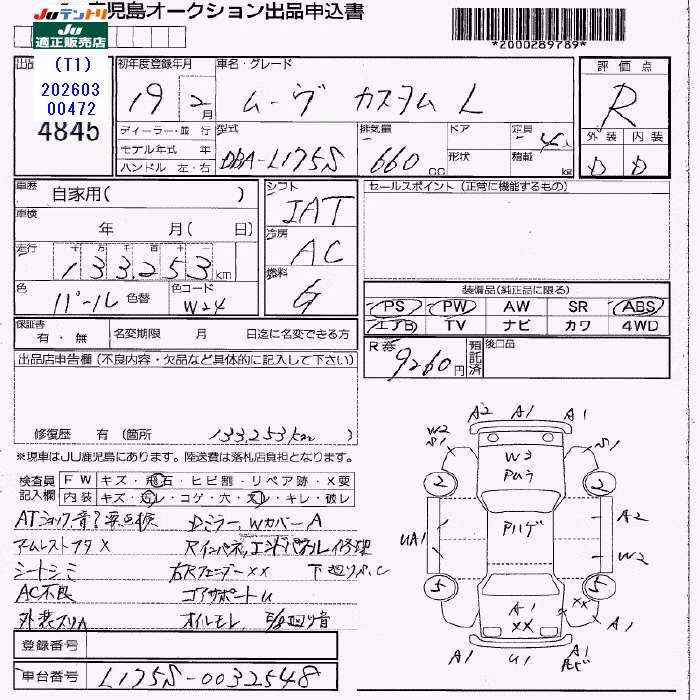 JUテントリ
JU
適正販売店
鹿児島オークション出品申込書
*2000289789*
出品
(T1)
202603
00472
4845
初年度登録年月
19 2月
車名・グレード
ムーヴ カスタム L
評価点
R
外装 内装
D D
ディーラー・並 行
モデル年式 年
ハンドル 左・右
型式
DBA-L175S
排気量
660 CC
ドア
形状
定員
4人
積載
kg
車歴
自家用( )
シフト
IAT
セールスポイント (正常に機能するもの)
車検
年 月( 日)
冷房
AC
走行
十 万 千 百 十 一
133,253 km
燃料
G
色
パール
色替
色コード
W24
装備品(純正品に限る)
PS PW AW SR ABS
エアB TV ナビ カワ 4WD
保証書
有・無
名変期限 月 日迄に名変できる方
R券
9260円
預託済
後日品
出品店申告欄 (不良内容・欠品など具体的に記入して下さい)
修復歴 有 (箇所 133,253km
※現車はJU鹿児島にあります。陸送費は落札店負担となります。
検査員
記入欄
FW キズ・飛石・ヒビ割・リペア跡・X要
内装 キズ・汚レ・コゲ・穴・スレ・キレ・破レ
ATショック、音?要点検 Dミラー、WカバーA
アームレストフタ× Rインパネ、エンドパネル修理
シートシミ 右Rフェンダー×× 下廻りサビC
AC不良 コアサポートU
外装スリA オイルモレ
登録番号
車台番号 L175S-0032548
A2 A1 A1
W2
S1
S1
W3
PUラ
2
2
UA1
Pハゲ
A2
W2
5
5
A1
××
××
A1
A1 U1 A1